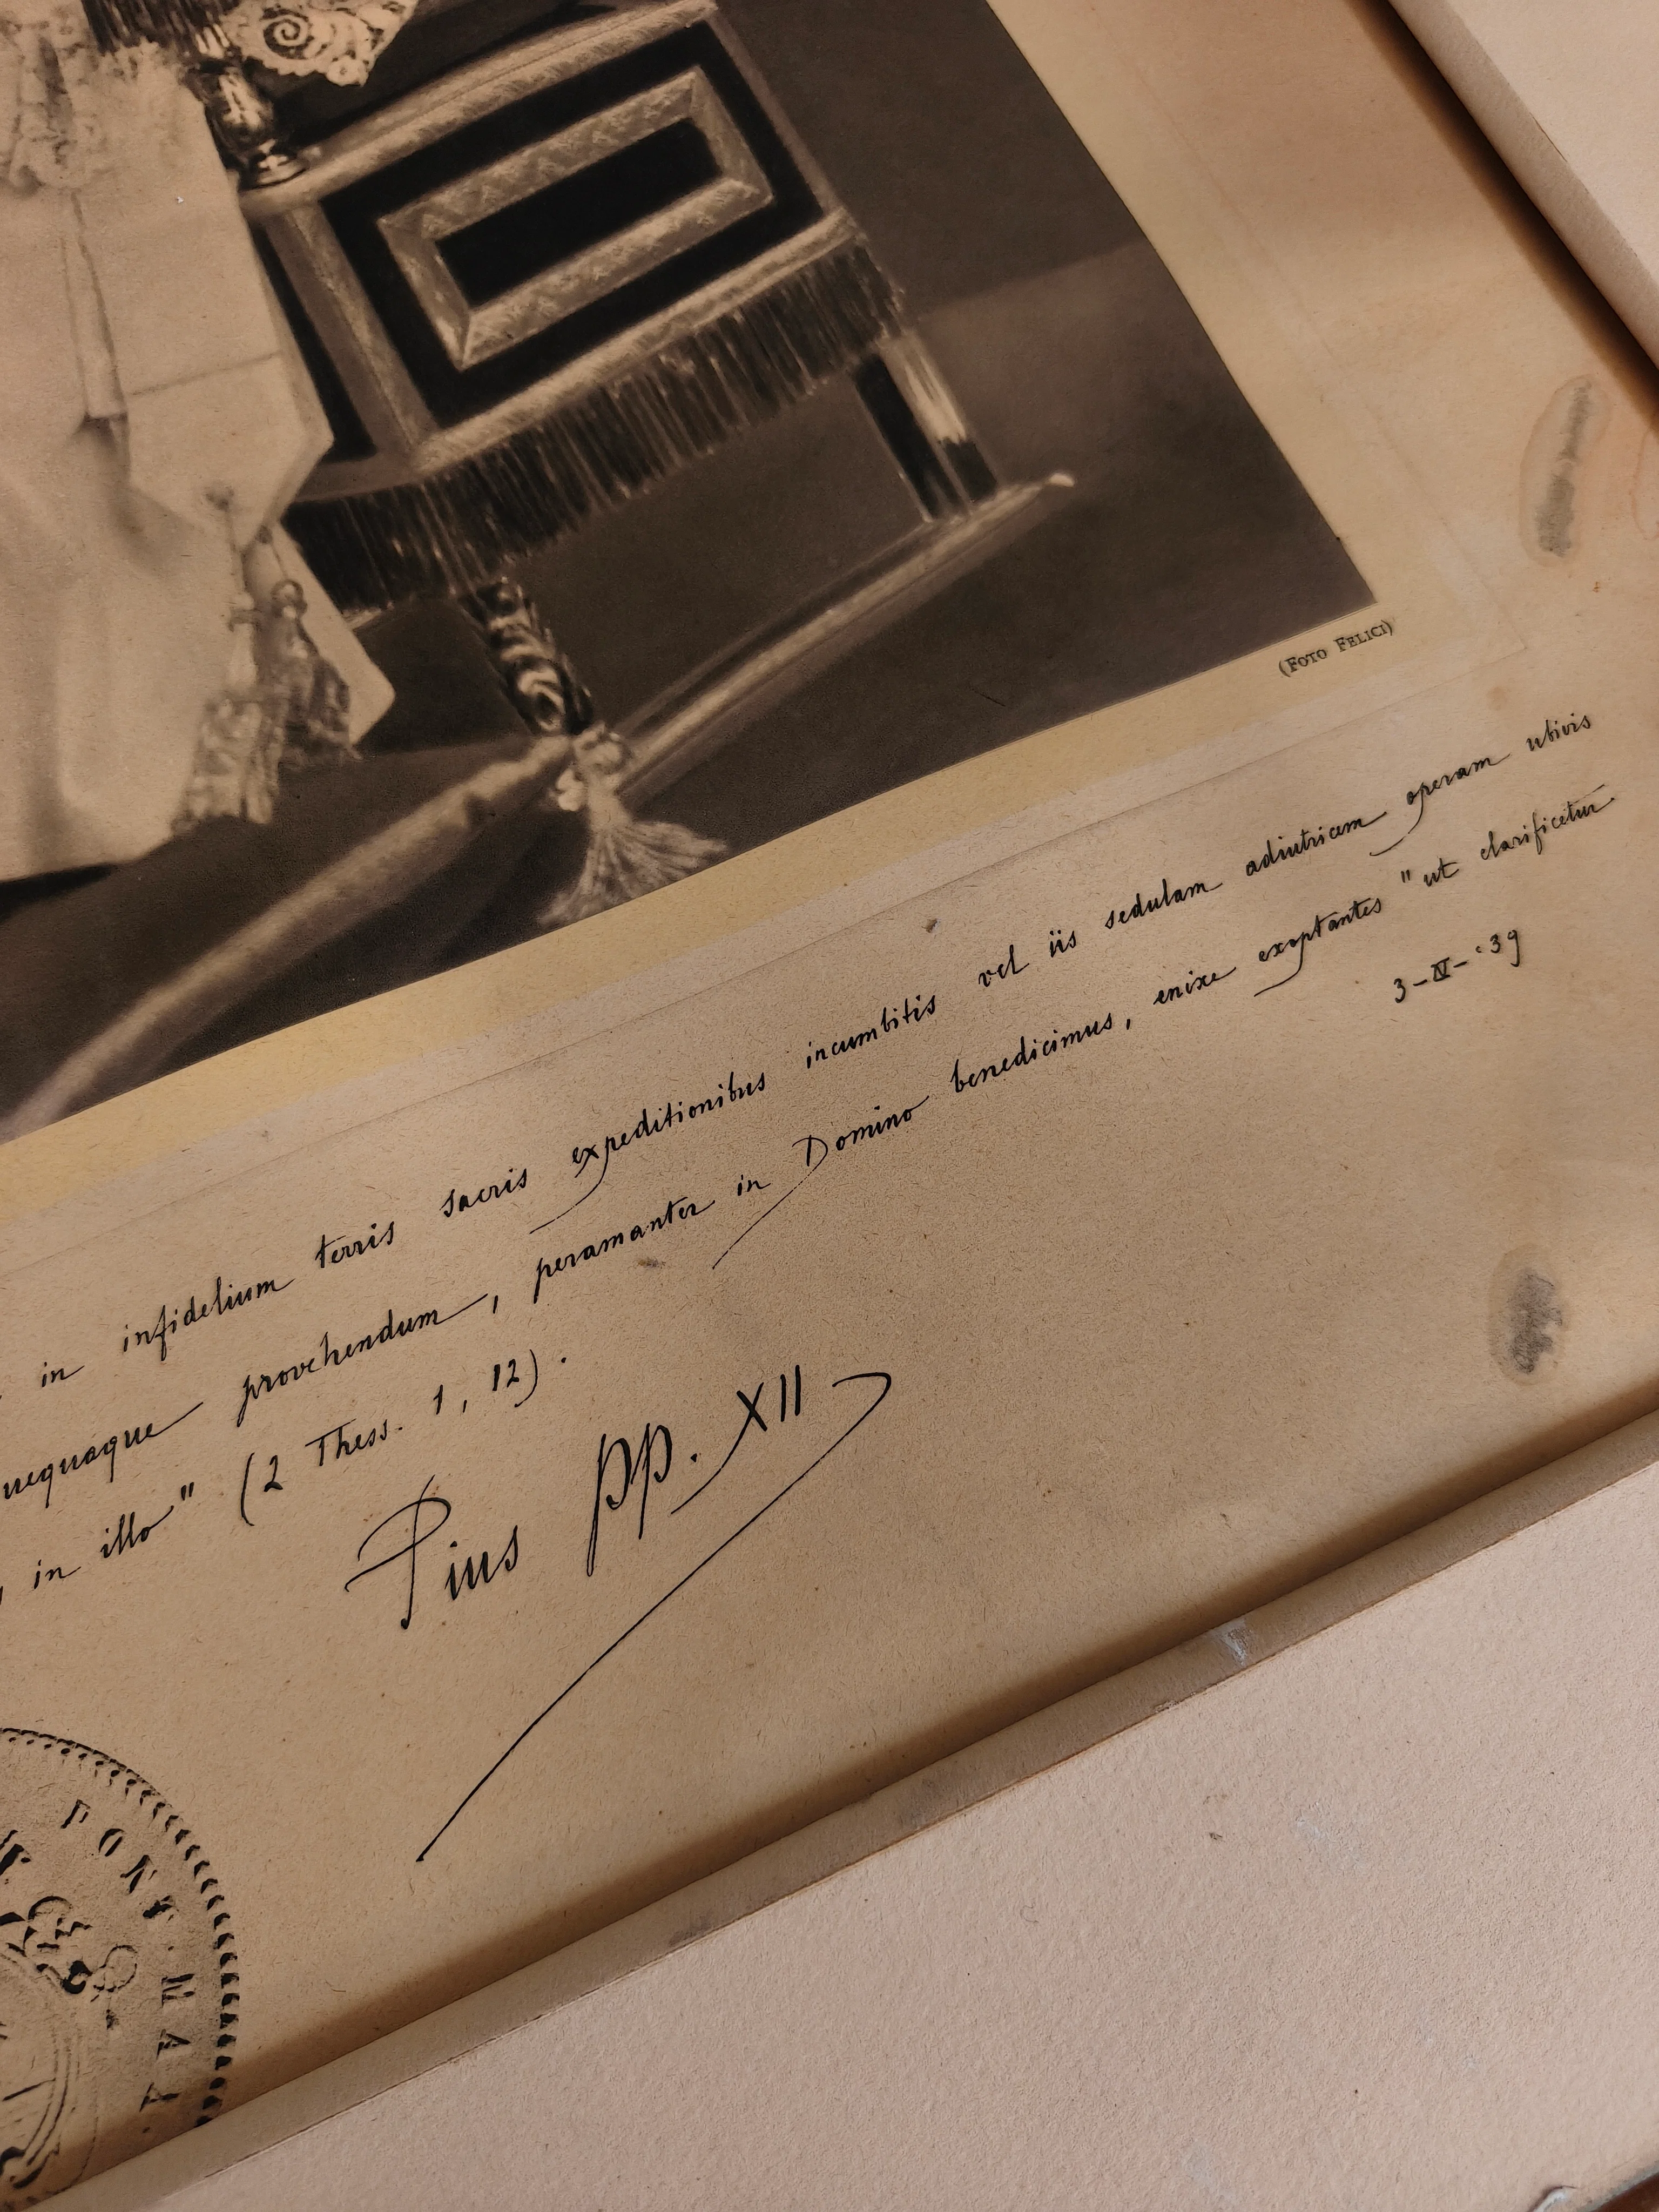 (FOTO FELICI)
in infidelium terris sacris expeditionibus incumbitis vel iis sedulam adiutricem operam ubivis
provehendum, peramanter in Domino benedicimus, enixe exoptantes "ut clarificetur
in illo" (2 Thess. 1, 12).
3-IV-'39
Pius pp. XII
PONT. MAX.